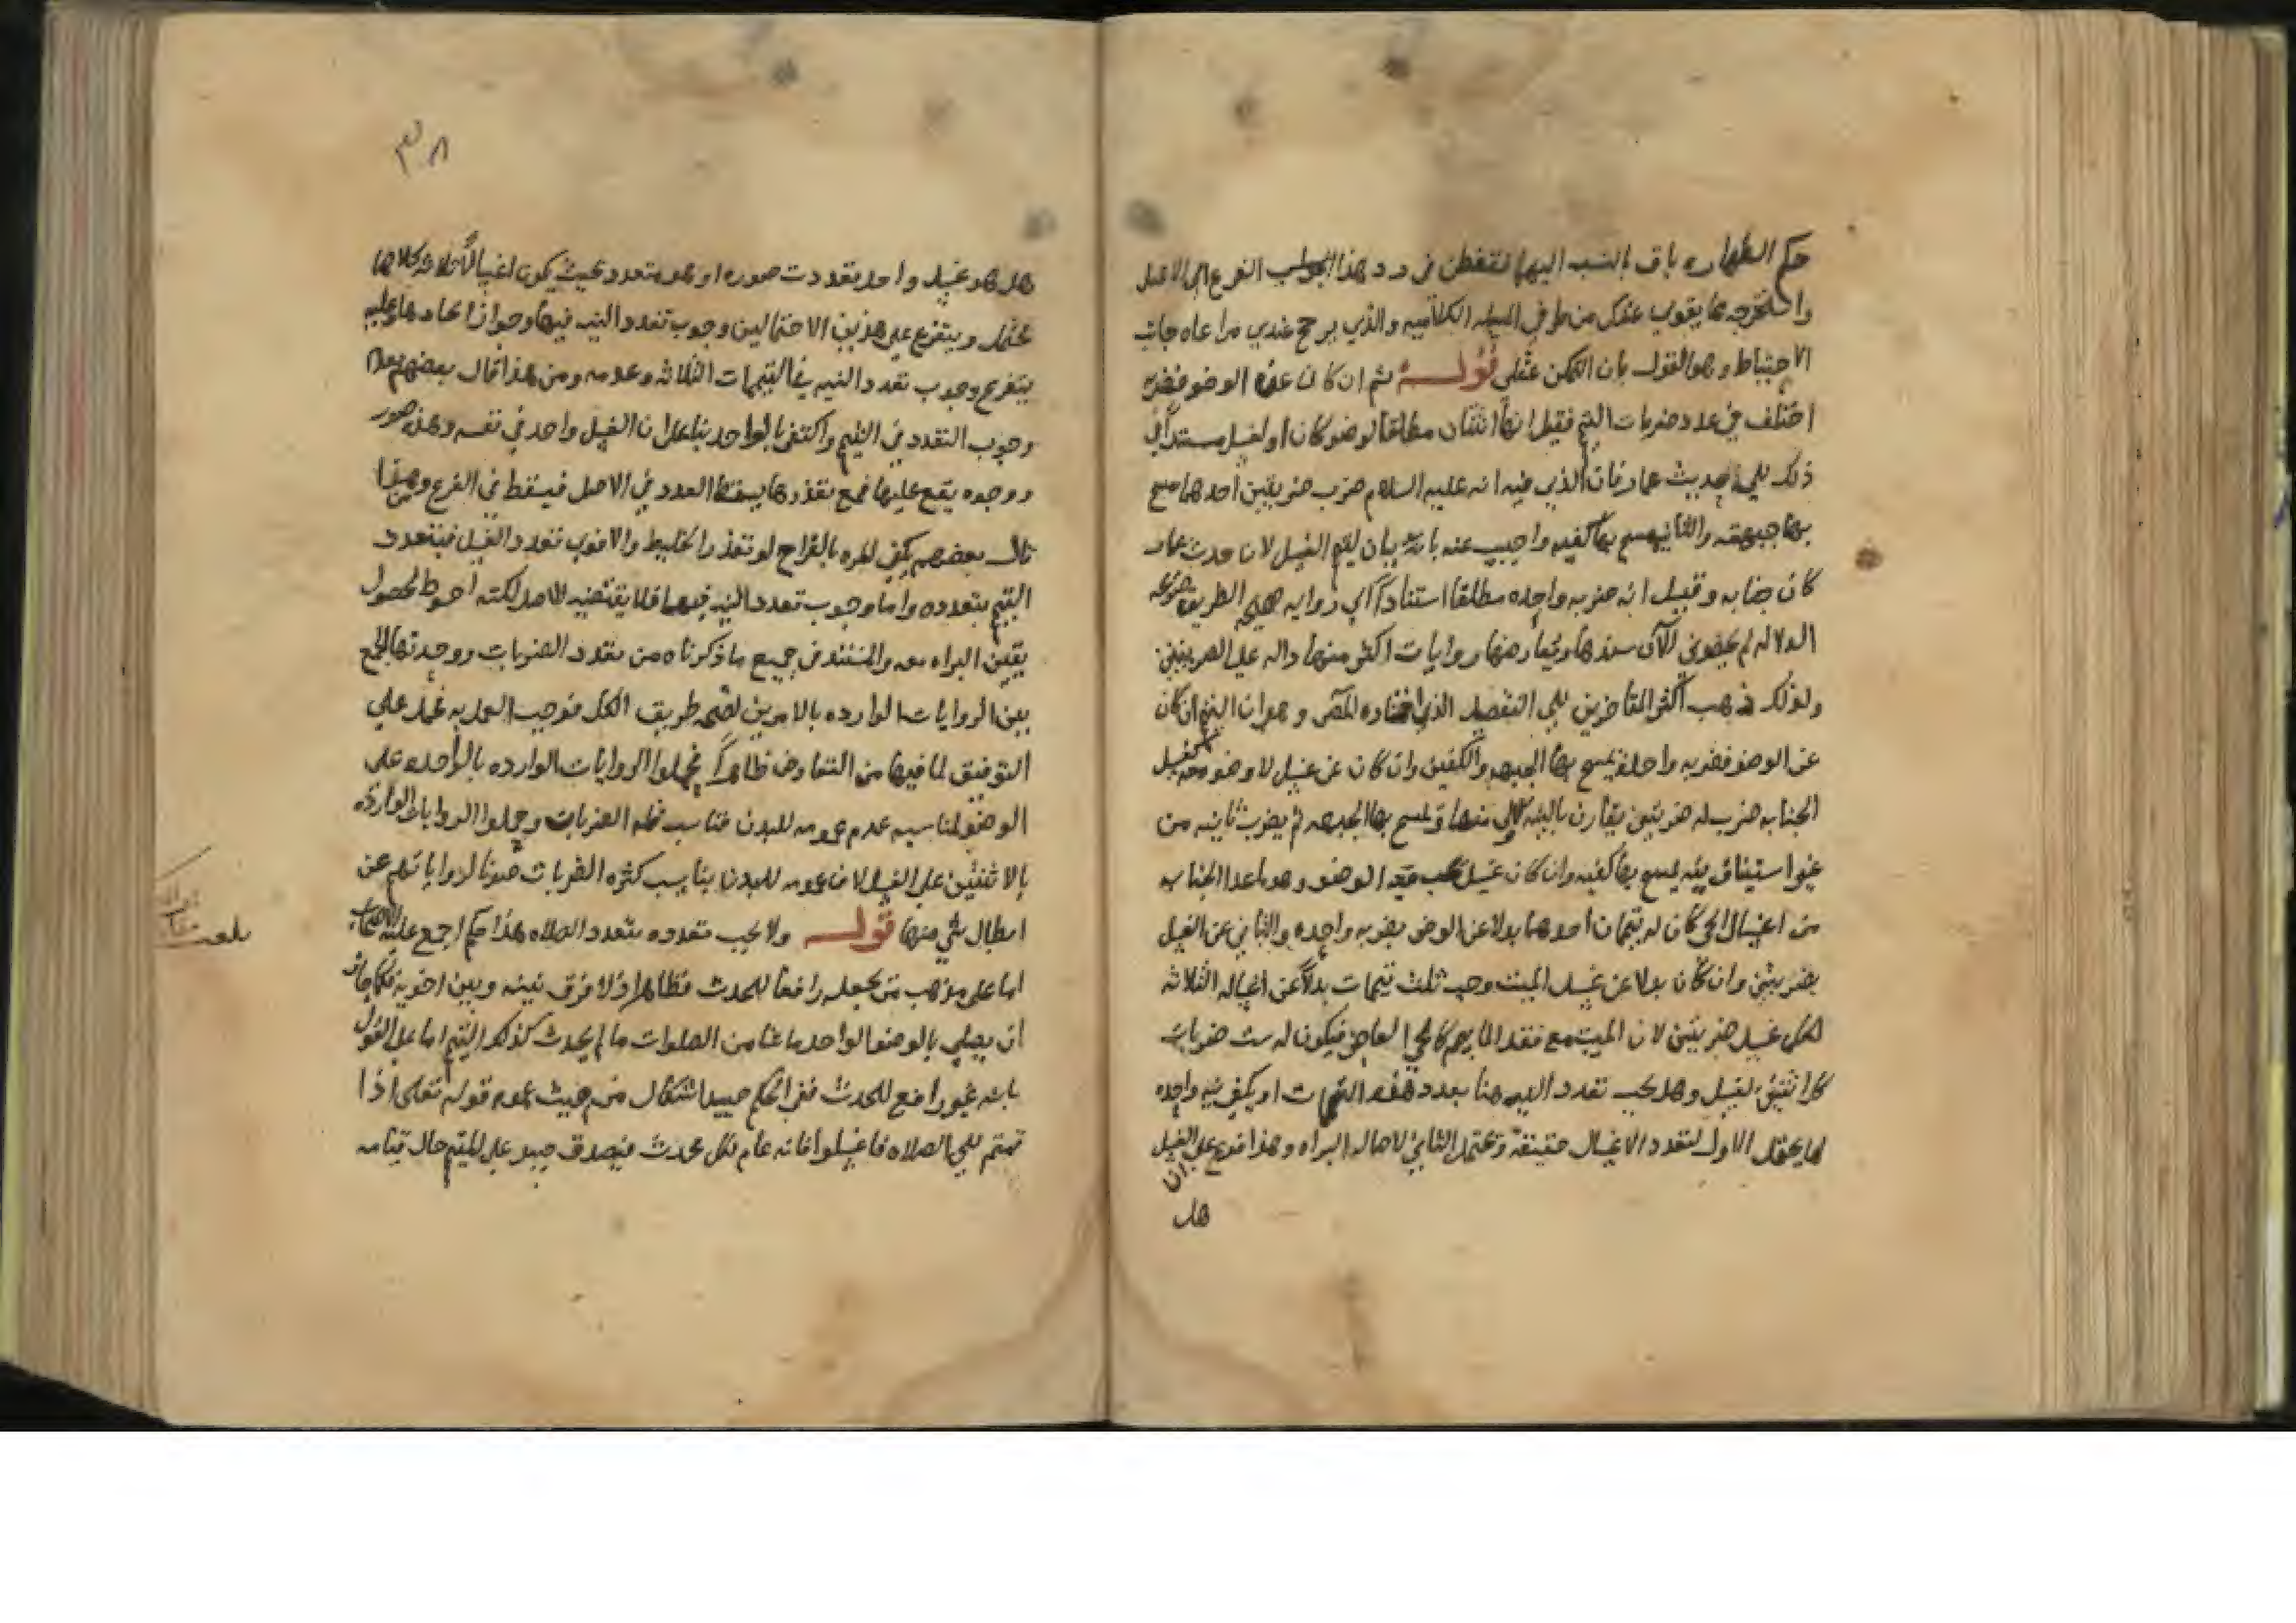 حكم الطهاره باق بالنسبه اليها فتفطن في رد هذا الجواب الفرع الى الاصل
واستخرجه مما يقوي عندك من طرفي المسئله الكلاميه والذي يرجح عندي مراعاه جانب
الاحتياط وهو القول بان التمكن عقلي قوله ثم ان كان عن الوضو فضربه
اختلف في عدد ضربات التيمم فقيل انها اثنتان مطلقا لوضو كان او لغسل مستندا في
ذلك الي حديث عمار فان الذي فيه انه عليه السلام ضرب ضربتين احدهما مسح
بها جبهته والثانيه مسح بها كفيه واجيب عنه بانه بيان لتيمم الغسل لان حدث عمار
كان جنابه وقيل انه ضربه واحده مطلقا استنادا الي روايه صحيحه الطريق صريحه
الدلاله لم يحضرني الآن سندها ويعارضها روايات اكثر منها داله على الضربتين
ولذلك ذهب اكثر المتاخرين الي التفصيل الذي اختاره المص وهو ان التيمم ان كان
عن الوضو فضربه واحده يمسح بها الجبهه والكفين وان كان عن غسل لا وضو معه كغسل
الجنابه ضرب له ضربتين يقارن بالنيه الاولى منهما ويمسح بها الجبهه ثم يضرب ثانيه من
غير استيناف نيه يمسح بها كفيه وان كان غسل يجب معه الوضو وهو ما عدا الجنابه
من اغسال الحي كان له تيممان احدهما بدلا عن الوضو بضربه واحده والثاني عن الغسل
بضربتين وان كان بدلا عن غسل الميت وجب ثلث تيممات بدلا عن اغساله الثلاثه
لكل غسل ضربتين لان الميت مع فقد الما يمم كالحي العاجز فيكون له ست ضربات
كل اثنتين لغسل وهل يجب تعدد النيه هنا بعدد هذه التيممات او يكفي نيه واحده
لها يحتمل الاول لتعدد الاغسال حقيقة ويحتمل الثاني لاصاله البراه وهذا فرع على الغسل
ان
هل
٣٨
هل هو غسل واحد تعددت صوره او هو متعدد بحيث يكون اغسالا ثلاثه كلاهما
محتمل ويتفرع على هذين الاحتمالين وجوب تعدد النيه فيها وجواز اتحادها وعليه
يتفرع وجوب تعدد النيه في التيممات الثلاثه وعدمه ومن هذا قال بعضهم بعدم
وجوب التعدد في التيمم واكتفى بالواحد بنا على ان الغسل واحد في نفسه وهذه صور
ووجوه يقع عليها فمع تعذرها يسقط العدد في الاصل فيسقط في الفرع ولهذا
قال بعضهم يكفي المره بالقراح لو تعذر الخليط والاقوى تعدد الغسل فيتعدد
التيمم بتعدده واما وجوب تعدد النيه فيهما فلا يقتضيه الاصل لكنه احوط لحصول
يقين البراه معه والمستند في جميع ما ذكرناه من تعدد الضربات ووحدتها الجمع
بين الروايات الوارده بالامرين لصحه طريق الكل فوجب العمل به فحمل علي
التوفيق لما فيها من التعارض ظاهرا فحملوا الروايات الوارده بالواحده على
الوضو لمناسبه عدم عمومه للبدن فناسب قله الضربات وحملوا الروايات الوارده
بالاثنتين على الغسل لان عمومه للبدن يناسب كثره الضربات صونا لرواياتهم عن
ابطال شي منها قوله ولا يجب تعدده بتعدد الصلاه هذا حكم اجمع عليه الاصحاب
اما على مذهب من يجعله رافعا للحدث فظاهر اذ لا فرق بينه وبين اخويه فكما جاز
ان يصلي بالوضو الواحد ما شا من الصلوات ما لم يحدث كذلك التيمم اما على القول
بانه غير رافع للحدث ففي الحكم حينئذ اشكال من حيث عموم قوله تعلى اذا
قمتم الي الصلاه فاغسلوا فانه عام لكل محدث فيصدق حينئذ على المتيمم حال قيامه
بلغت